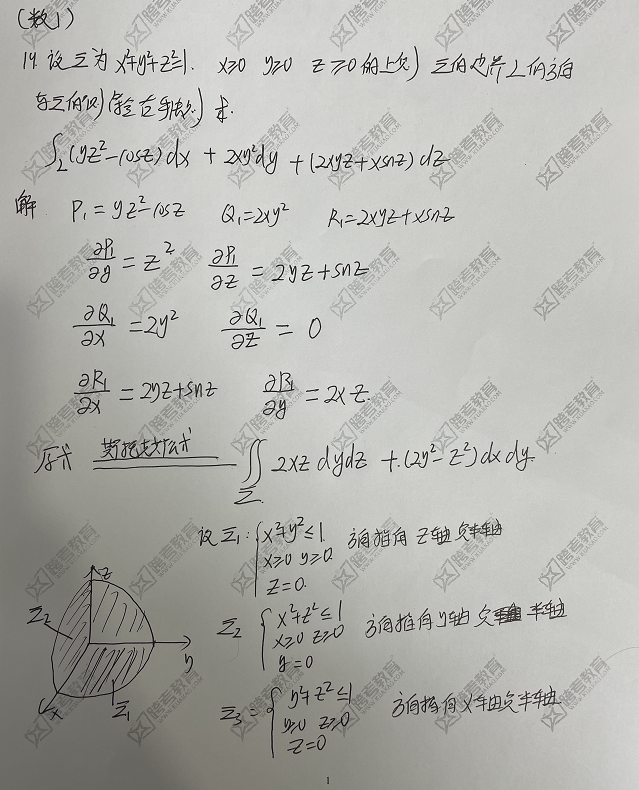 (数1)
14 设Σ为x²+y²+z²=1. x≥0 y≥0 z≥0的上侧) Σ的边界L的方向
与Σ的侧) 符合右手法则) 求.
∫_L (yz²-cosz)dx + 2xy²dy + (2xyz+xsinz)dz
解 P₁=yz²-cosz Q₁=2xy² R₁=2xyz+xsinz
∂P₁/∂y = z² ∂P₁/∂z = 2yz+sinz
∂Q₁/∂x = 2y² ∂Q₁/∂z = 0
∂R₁/∂x = 2yz+sinz ∂R₁/∂y = 2xz.
原式 斯托克斯公式 ∬_Σ 2xz dydz + (2y²-z²)dxdy.
设Σ₁: { x²+y²≤1 x≥0 y≥0 z=0. 方向指向z轴负半轴
Σ₂ { x²+z²≤1 x≥0 z≥0 y=0 方向指向y轴负半轴
Σ₃= { y²+z²≤1 y≥0 z≥0 z=0 方向指向x轴负半轴
z
Σ₂
y
x
Σ₁
1
跨考教育
WWW.KUAKAO.COM